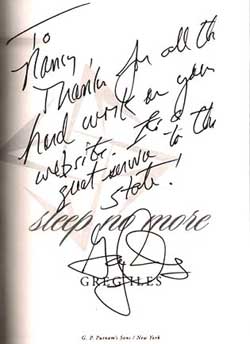 To
Nancy
Thanks for all the
hard work on your
website. It's a
great service to the
state!
sleep no more
GREG ILES
G. P. Putnam's Sons / New York